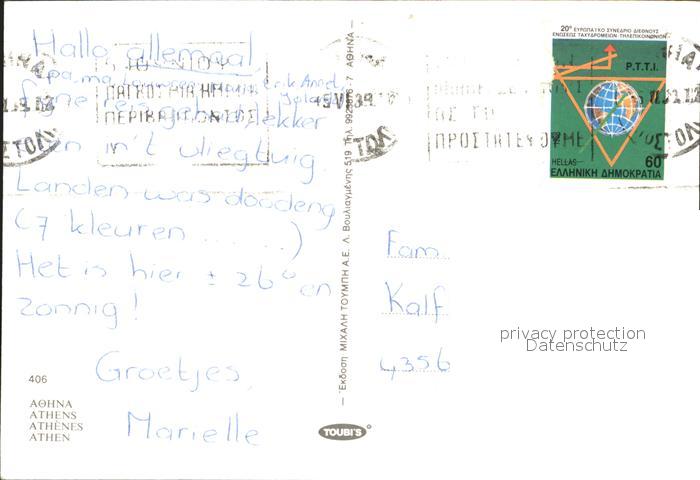 Hallo allemaal,
pa, ma,
fijne reis gehad, lekker
in 't vliegtuig.
Landen was doodeng
(7 kleuren .......)
Het is hier ± 26° en
zonnig!
Groetjes,
Marielle
406
ΑΘΗΝΑ
ATHENS
ATHÈNES
ATHEN
Έκδοση ΜΙΧΑΛΗ ΤΟΥΜΠΗ Α.Ε. Λ. Βουλιαγμένης 519 Τηλ. 9923876-7 ΑΘΗΝΑ
TOUBI'S
20° ΕΥΡΩΠΑΪΚΟ ΣΥΝΕΔΡΙΟ ΔΙΕΘΝΟΥΣ
ΕΝΩΣΕΩΣ ΤΑΧΥΔΡΟΜΕΙΩΝ-ΤΗΛΕΠΙΚΟΙΝΩΝΙΩΝ
P.T.T.I.
HELLAS
60
ΕΛΛΗΝΙΚΗ ΔΗΜΟΚΡΑΤΙΑ
ΠΑΓΚΟΣΜΙΑ ΗΜΕΡΑ
ΠΕΡΙΒΑΛΛΟΝΤΟΣ
ΑΣ ΤΟ
ΠΡΟΣΤΑΤΕΥΟΥΜΕ
Fam.
Kalf
4356
privacy protection
Datenschutz